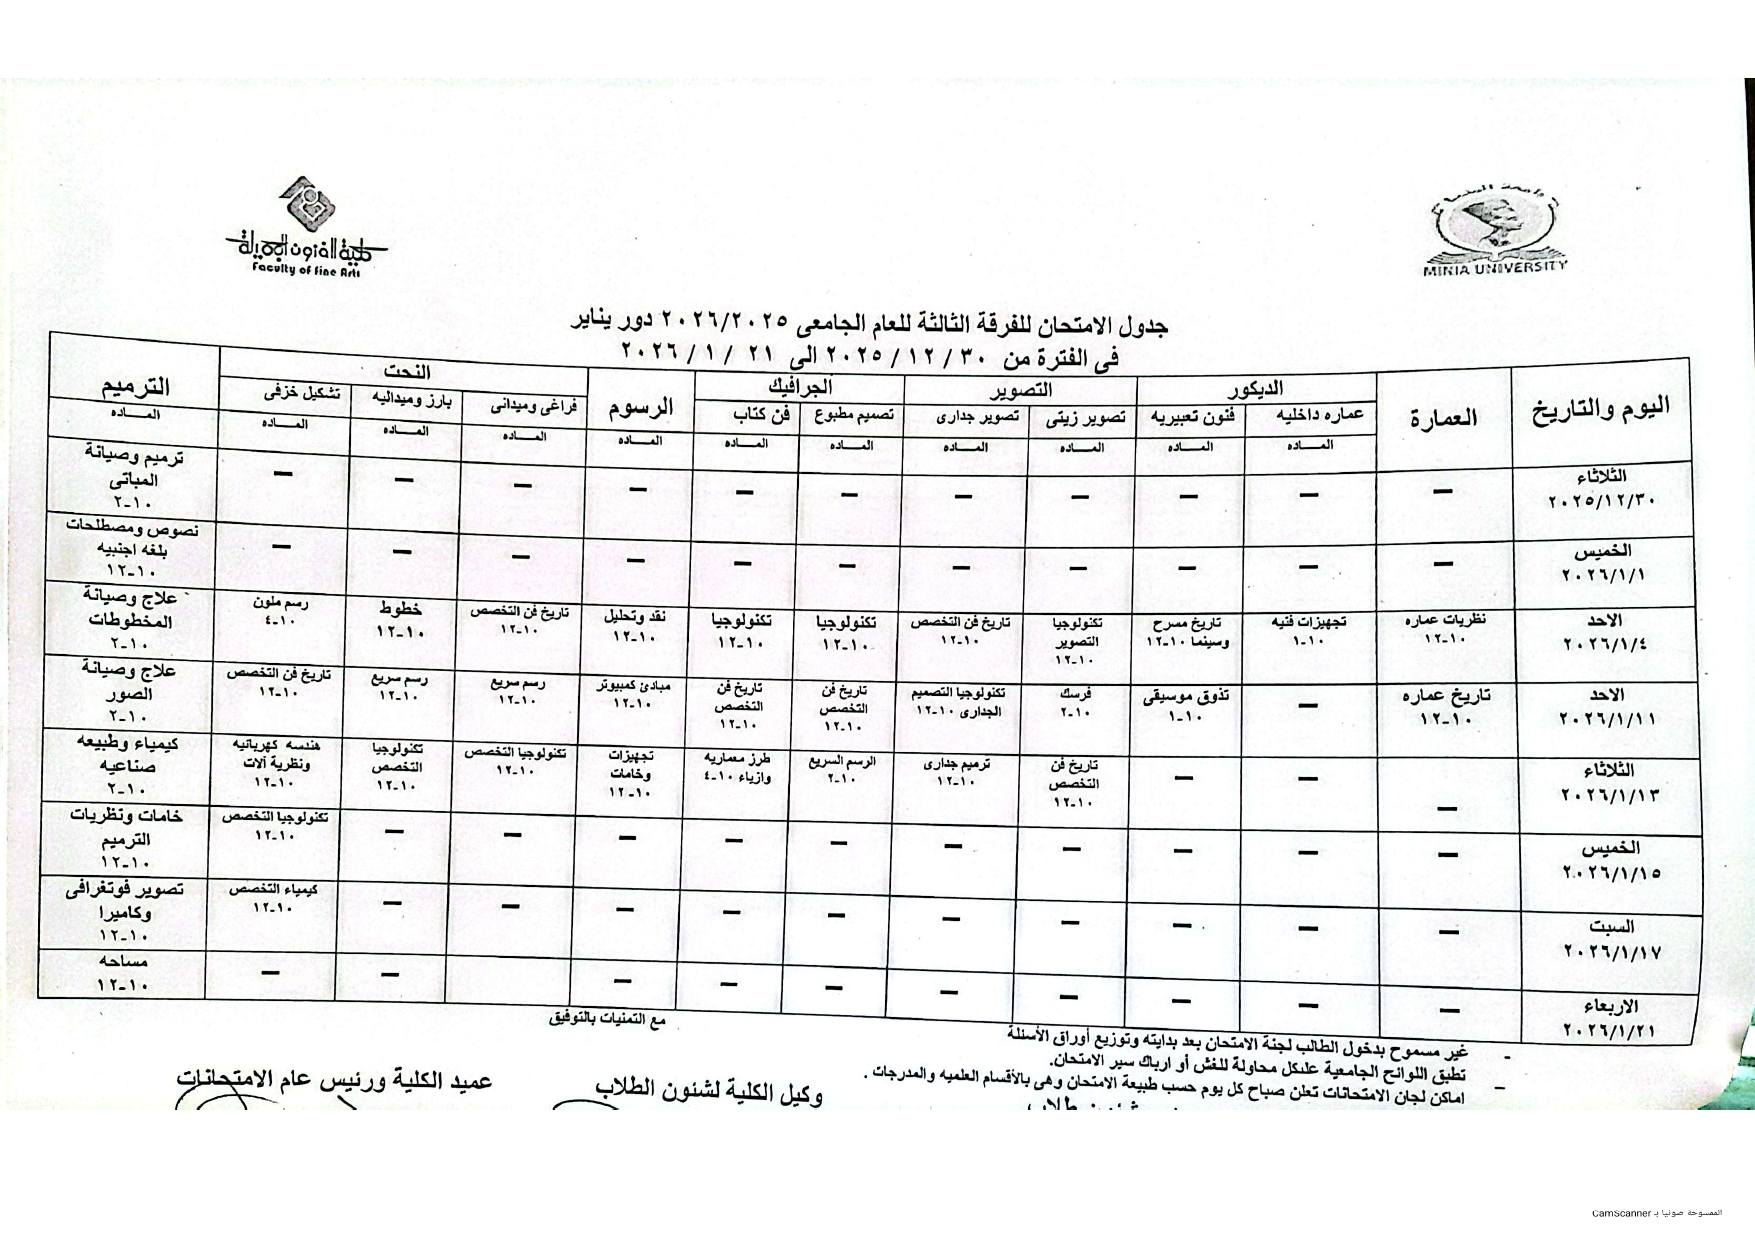 جامعة المنيا
MINIA UNIVERSITY
كلية الفنون الجميلة
Faculty of Fine Arts
جدول الامتحان للفرقة الثالثة للعام الجامعى ٢٠٢٦/٢٠٢٥ دور يناير
فى الفترة من ٣٠ / ١٢ / ٢٠٢٥ الى ٢١ / ١ / ٢٠٢٦
اليوم والتاريخ | العمارة | الديكور | التصوير | الجرافيك | الرسوم | النحت | الترميم
عماره داخليه | فنون تعبيريه | تصوير زيتى | تصوير جدارى | تصميم مطبوع | فن كتاب | فراغى وميدانى | بارز وميداليه | تشكيل خزفى
المـــاده | المـــاده | المـــاده | المـــاده | المـــاده | المـــاده | المـــاده | المـــاده | المـــاده | المـــاده | المـــاده
الثلاثاء ٢٠٢٥/١٢/٣٠ | – | – | – | – | – | – | – | – | – | – | – | ترميم وصيانة المبانى ١٠-٢
الخميس ٢٠٢٦/١/١ | – | – | – | – | – | – | – | – | – | – | – | نصوص ومصطلحات بلغه اجنبيه ١٠-١٢
الاحد ٢٠٢٦/١/٤ | نظريات عماره ١٠-١٢ | تجهيزات فنيه ١٠-١ | تاريخ مسرح وسينما ١٠-١٢ | تكنولوجيا التصوير ١٠-١٢ | تاريخ فن التخصص ١٠-١٢ | تكنولوجيا ١٠-١٢ | تكنولوجيا ١٠-١٢ | نقد وتحليل ١٠-١٢ | تاريخ فن التخصص ١٠-١٢ | خطوط ١٠-١٢ | رسم ملون ١٠-٤ | علاج وصيانة المخطوطات ١٠-٢
الاحد ٢٠٢٦/١/١١ | تاريخ عماره ١٠-١٢ | – | تذوق موسيقى ١٠-١ | فرسك ١٠-٢ | تكنولوجيا التصميم الجدارى ١٠-١٢ | تاريخ فن التخصص ١٠-١٢ | تاريخ فن التخصص ١٠-١٢ | مبادئ كمبيوتر ١٠-١٢ | رسم سريع ١٠-١٢ | رسم سريع ١٠-١٢ | تاريخ فن التخصص ١٠-١٢ | علاج وصيانة الصور ١٠-٢
الثلاثاء ٢٠٢٦/١/١٣ | – | – | – | تاريخ فن التخصص ١٠-١٢ | ترميم جدارى ١٠-١٢ | الرسم السريع ١٠-٢ | طرز معماريه وازياء ١٠-٤ | تجهيزات وخامات ١٠-١٢ | تكنولوجيا التخصص ١٠-١٢ | تكنولوجيا التخصص ١٠-١٢ | هندسه كهربائيه ونظرية آلات ١٠-١٢ | كيمياء وطبيعه صناعيه ١٠-٢
الخميس ٢٠٢٦/١/١٥ | – | – | – | – | – | – | – | – | – | – | تكنولوجيا التخصص ١٠-١٢ | خامات ونظريات الترميم ١٠-١٢
السبت ٢٠٢٦/١/١٧ | – | – | – | – | – | – | – | – | – | – | كيمياء التخصص ١٠-١٢ | تصوير فوتغرافى وكاميرا ١٠-١٢
الاربعاء ٢٠٢٦/١/٢١ | – | – | – | – | – | – | – | – | | – | – | مساحه ١٠-١٢
- غير مسموح بدخول الطالب لجنة الامتحان بعد بدايته وتوزيع أوراق الأسئلة
تطبق اللوائح الجامعية علىكل محاولة للغش أو ارباك سير الامتحان.
- اماكن لجان الامتحانات تعلن صباح كل يوم حسب طبيعة الامتحان وهى بالأقسام العلميه والمدرجات .
مع التمنيات بالتوفيق
وكيل الكلية لشئون الطلاب
عميد الكلية ورئيس عام الامتحانات
الممسوحة ضوئيا بـ CamScanner